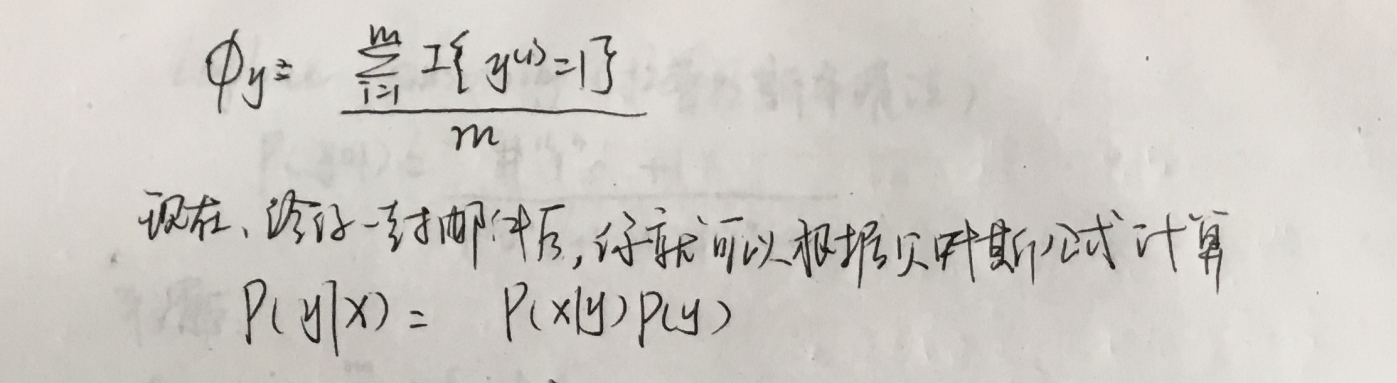 φy = Σ_{i=1}^{m} I{y^{(i)}=1} / m
现在、给你一封邮件后,你就可以根据贝叶斯公式计算
P(y|x) = P(x|y)P(y)